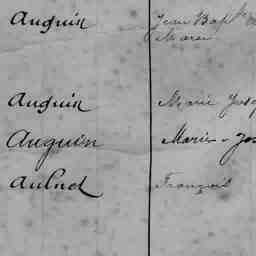 Auguin Jean Bapte
Marie
Auguin Marie Jos
Auguin Marie - Jos
Aulnet François